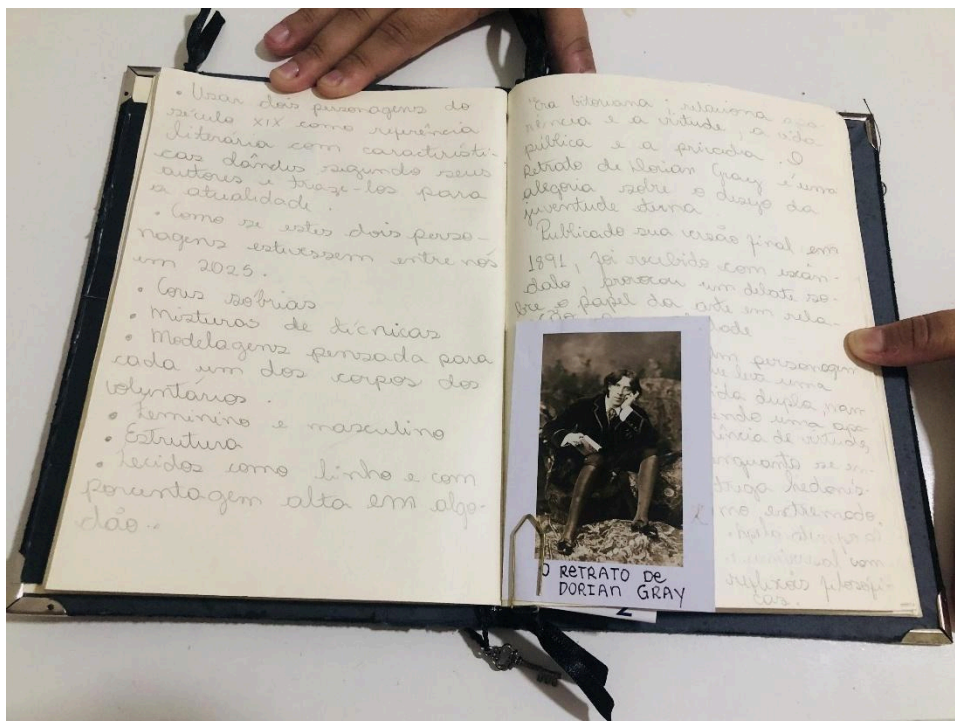 • Usar dois personagens do
século XIX como referência
literária com característi-
cas dândis segundo seus
autores e traze-los para
a atualidade.
• Como se estes dois perso-
nagens estivessem entre nós
em 2025.
• Cores sóbrias
• Misturas de técnicas
• Modelagens pensada para
cada um dos corpos dos
voluntários.
• Feminino e masculino
• Estrutura
• Tecidos como linho e com
porcentagem alta em algo-
dão.
"Era Vitoriana", relaciona apa-
rência e a virtude, a vida
pública e a privada. O
Retrato de Dorian Gray é uma
alegoria sobre o desejo da
juventude eterna.
Publicado sua versão final em
1891, foi recebido com escân-
dalo, provocou um debate so-
bre o papel da arte em rela-
um personagem
leva uma
vida dupla, man
endo uma apa-
rência de virtude,
enquanto se en-
trega hedonis-
mo extremado.
com
reflexões filosófi-
cas.
O RETRATO DE
DORIAN GRAY
2